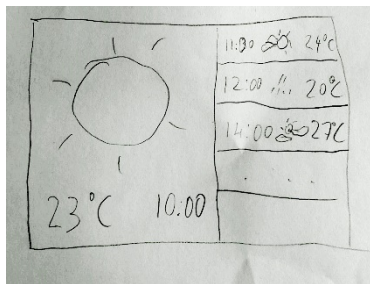 23°C 10:00
11:30 24°C
12:00 20°C
14:00 27°C
. . .